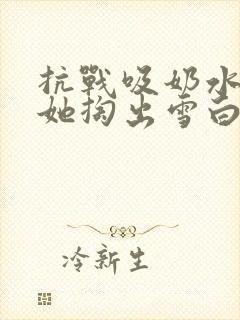 抗戰吸奶水
她掏出雪白
冷新生